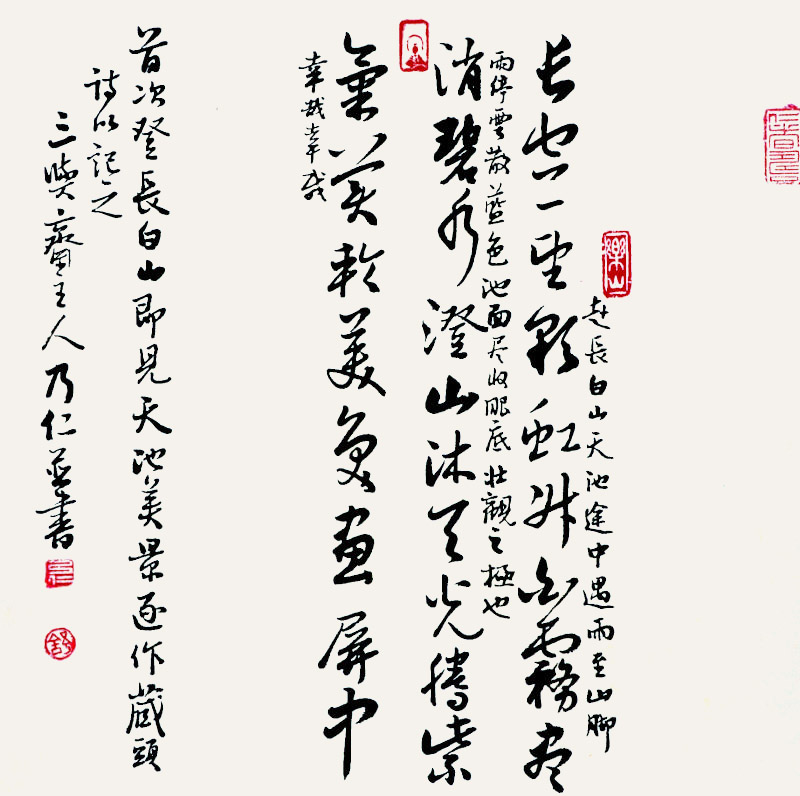 樂山
赴長白山天池途中遇雨至山腳
长空一望彩虹升白霧尽
雨停雲散藍色池面尽收眼底壯觀之極也
消碧水澄山沐天光騰紫
氣美轮美奂画屏中
幸哉幸哉
首次登長白山即見天池美景遂作藏頭
詩以記之
三齋主人乃仁並書